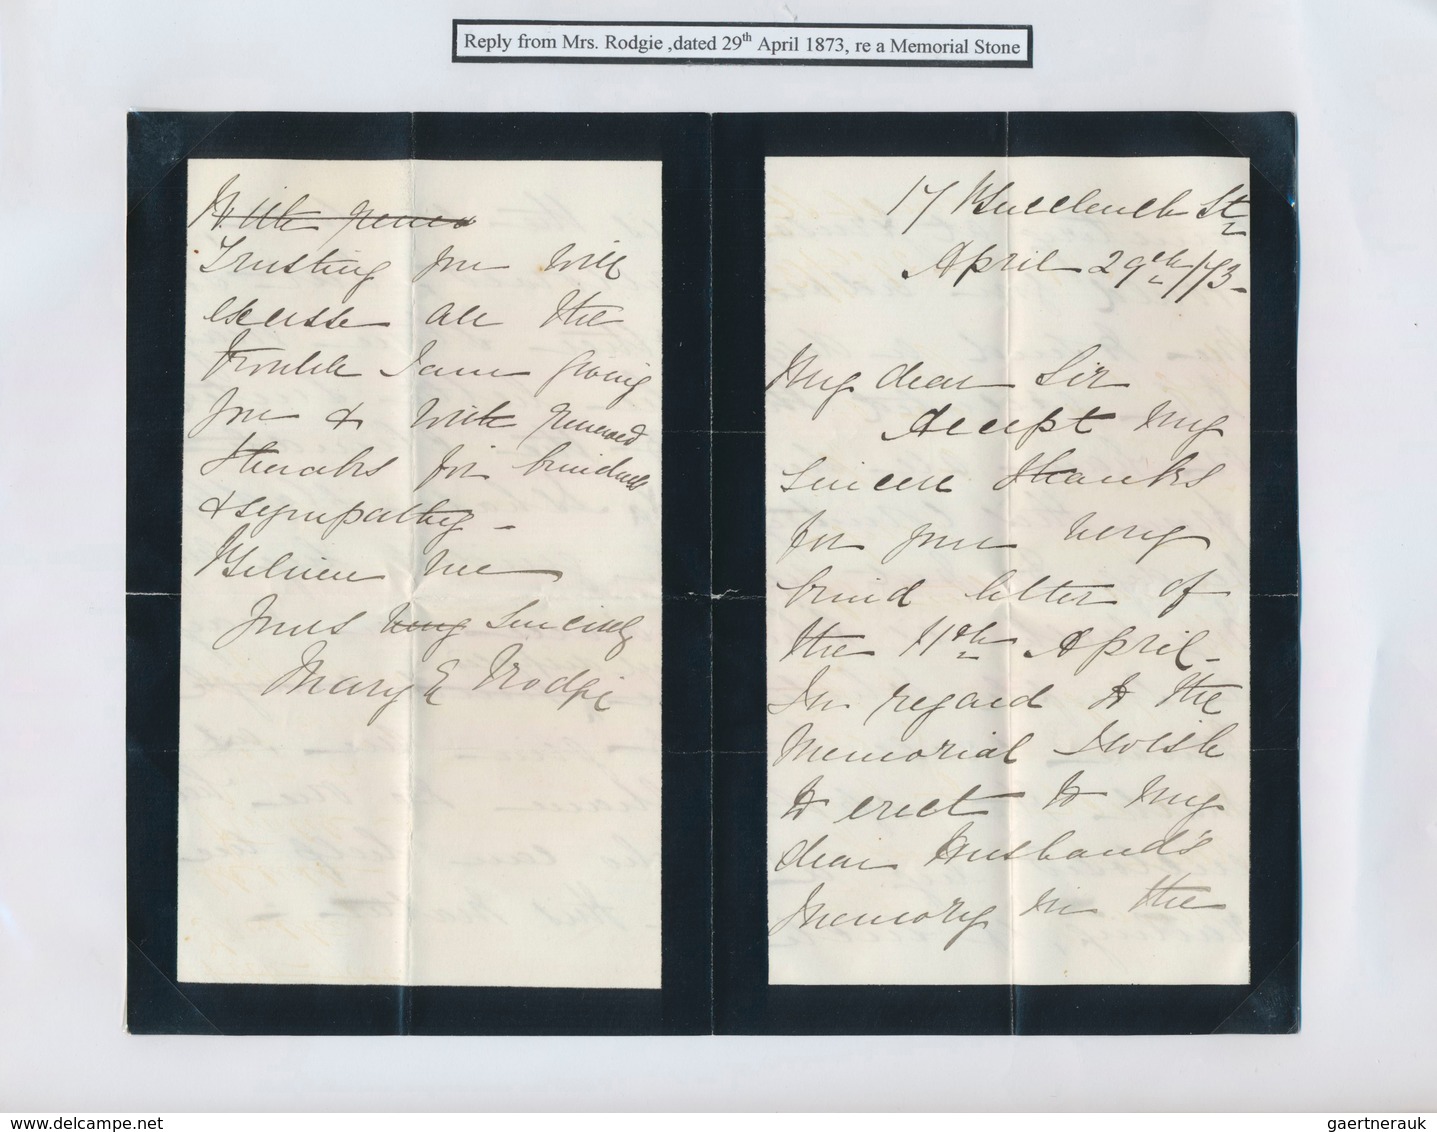 Reply from Mrs. Rodgie ,dated 29th April 1873, re a Memorial Stone
17 Buccleuch St
April 29th/73-
My dear Sir
Accept my
sincere thanks
for your very
kind letter of
the 11th April-
In regard to the
Memorial I wish
to erect to my
dear Husband's
memory in the
With renew
Trusting you will
excuse all the
trouble I am giving
you & with renewed
thanks for kindness
& sympathy-
Believe me
yours very sincerely
Mary E Rodgie
gaertnerauk